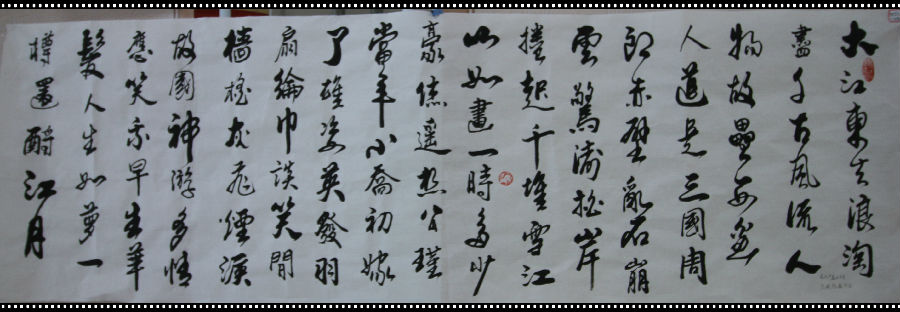 大江東去浪淘
盡千古風流人
物故壘西邊
人道是三國周
郎赤壁亂石崩
雲驚濤拍岸
捲起千堆雪江
山如畫一時多少
豪傑遙想公瑾
當年小喬初嫁
了雄姿英發羽
扇綸巾談笑間
檣櫓灰飛煙滅
故國神游多情
應笑我早生華
髮人生如夢一
樽還酹江月